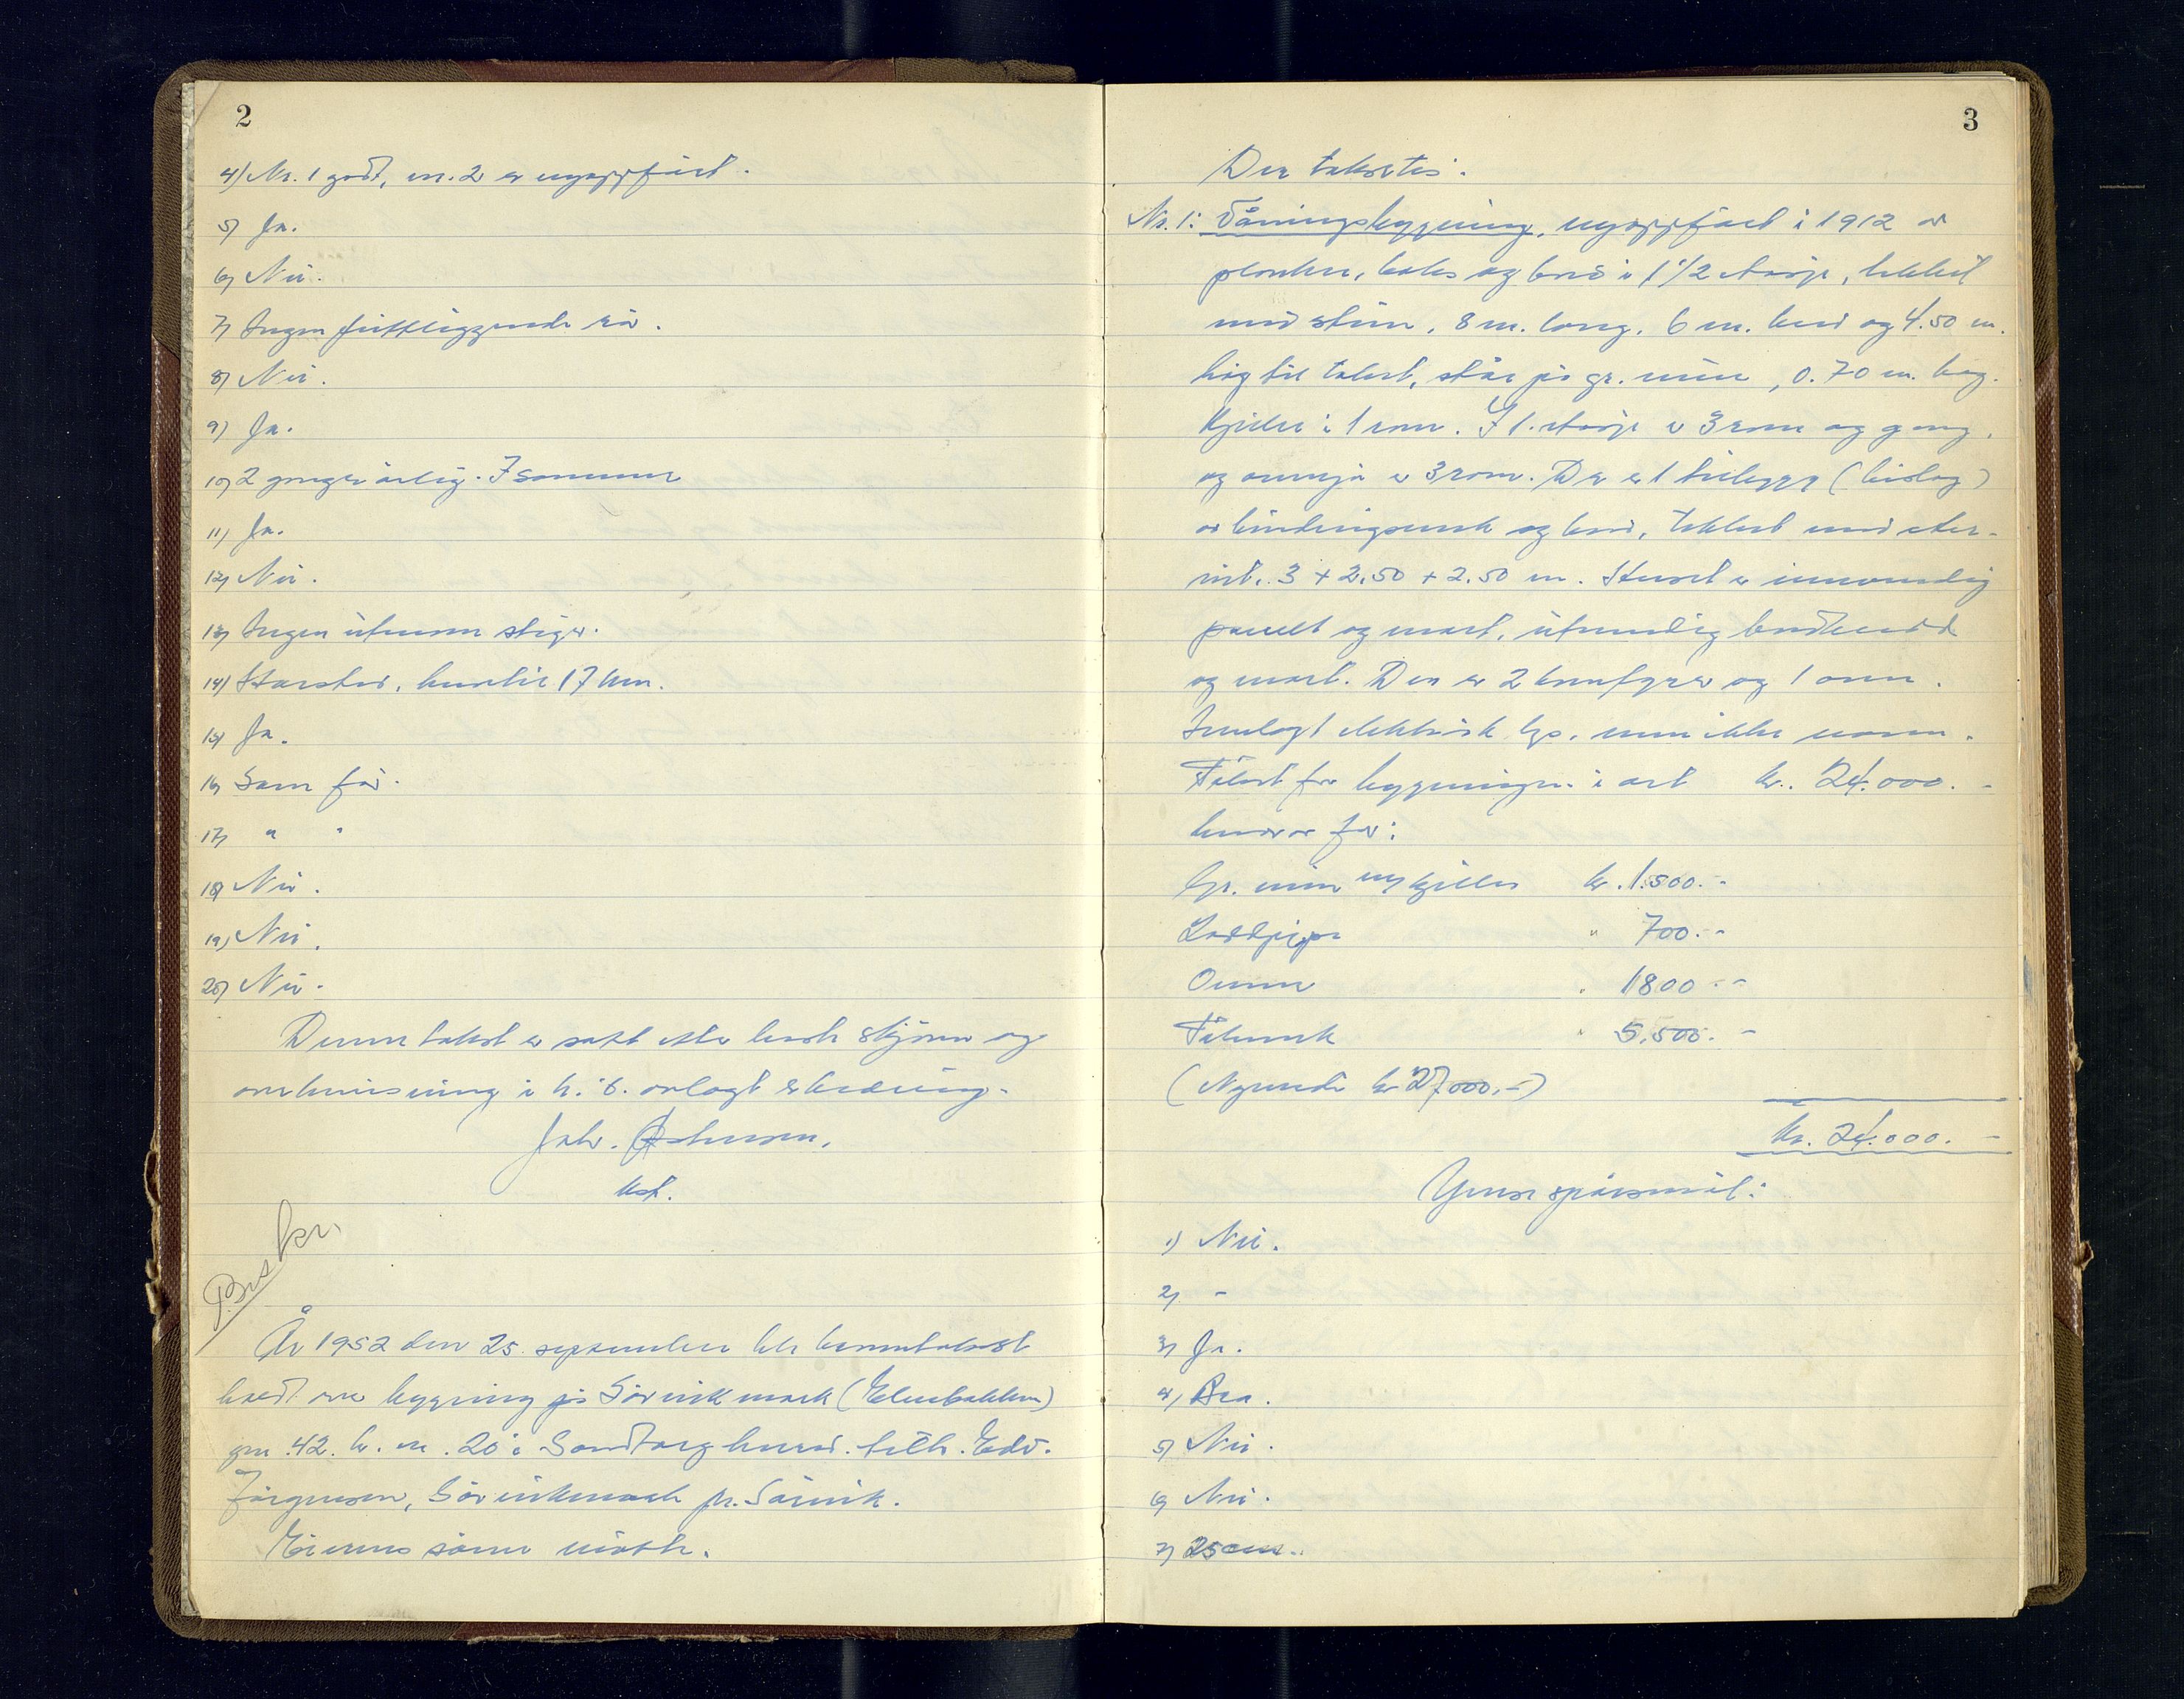 2
4) Nr. 1 godt, nr. 2 er nyoppført.
5) Ja.
6) Nei.
7) Ingen frittliggende rør.
8) Nei.
9) Ja.
10) 2 ganger årlig. I sommer
11) Ja.
12) Nei.
13) Ingen utvunn stiger.
14) Harstad, hvortil 17 km.
15) Ja.
16) Som før.
17) " "
18) Nei.
19) Nei.
20) Nei.
Denne takst er satt etter beste skjønn og
overbevisning i h. t. avlagt erklæring.
Joh. Johnsen.
kst.
Beskr.
År 1952 den 25. september ble branntakst
holdt over bygning på Sørvikmark (Elvebakken)
gnr. 42. br. nr. 20 i Sandtorg herred. tilh. Edv.
Jørgensen, Sørvikmark pr. Sørvik.
Eierens sønn møtte.
3
Der takstes.
Nr. 1: Våningsbygning, nyoppført i 1912 av
planker, laks og bord i 1 1/2 etasje, tekket
med stein. 8 m. lang. 6 m. bred og 4.50 m.
høg til takset, står på gr. mur, 0.70 m. høg.
Kjeller i 1 rom. I 1. etasje er 3 rom og gang,
og ovenpå er 3 rom. Der er 1 tilbygg (bislag)
av bindingsverk og bord, tekket med eter-
nit. 3 + 2.50 + 2.50 m. Huset er innvendig
panelt og malt, utvendig bordkledd
og malt. Der er 2 komfyrer og 1 ovn.
Innlagt elektrisk lys, men ikke vann.
Takst for bygningen i alt kr. 24.000. -
hvorav for:
Gr. mur og kjeller kr. 1.500. -
Loddpipe " 700. -
Ovner " 1800. -
Taket " 5.500. -
(Nyverdi kr 27.000. -)
kr. 24.000. -
Generelle spørsmål:
1) Nei.
2) -
3) Ja.
4) Bra.
5) Nei.
6) Nei.
7) 25 cm.